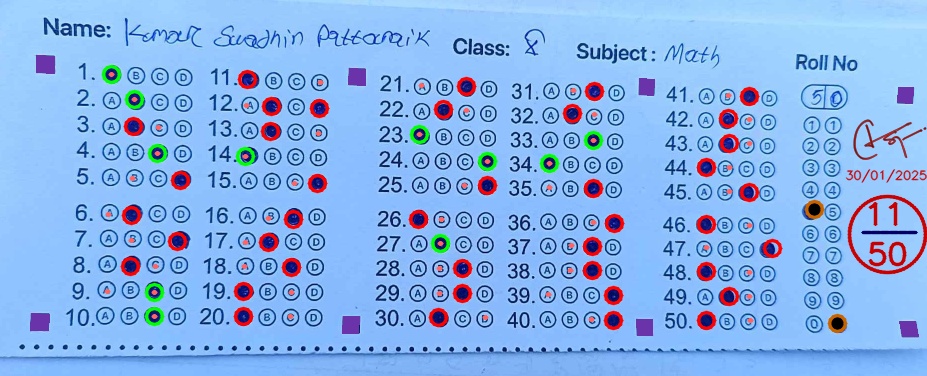 Name: Kumar Swadhin Pattanaik Class: 8 Subject: Math Roll No
50
1. A B C D
2. A B C D
3. A B C D
4. A B C D
5. A B C D
6. A B C D
7. A B C D
8. A B C D
9. A B C D
10. A B C D
11. A B C D
12. A B C D
13. A B C D
14. A B C D
15. A B C D
16. A B C D
17. A B C D
18. A B C D
19. A B C D
20. A B C D
21. A B C D
22. A B C D
23. A B C D
24. A B C D
25. A B C D
26. A B C D
27. A B C D
28. A B C D
29. A B C D
30. A B C D
31. A B C D
32. A B C D
33. A B C D
34. A B C D
35. A B C D
36. A B C D
37. A B C D
38. A B C D
39. A B C D
40. A B C D
41. A B C D
42. A B C D
43. A B C D
44. A B C D
45. A B C D
46. A B C D
47. A B C D
48. A B C D
49. A B C D
50. A B C D
1 1
2 2
3 3
4 4
5
6 6
7 7
8 8
9 9
0
30/01/2025
11
50